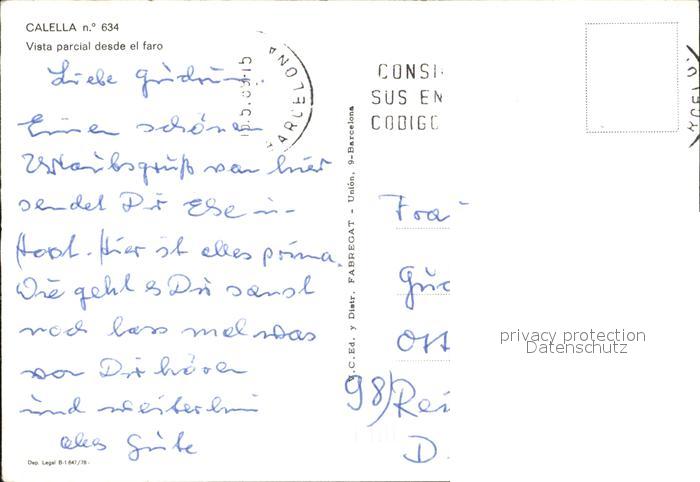 CALELLA n.° 634
Vista parcial desde el faro
Liebe Gudrun.
Einen schönen
Urlaubsgruß von hier
sendet Dir Else u.
Horst. Hier ist alles prima.
Wie geht es Dir sonst
noch lass mal was
von Dir hören
und weiterhin
alles Gute
Dep. Legal B-1647/78-
BARCELONA
CONSI
SUS EN
CODIGO
C. Ed. y Distr. FABREGAT - Unión, 9-Barcelona
Frau
Gud
Ott
98)Rei
D
privacy protection
Datenschutz